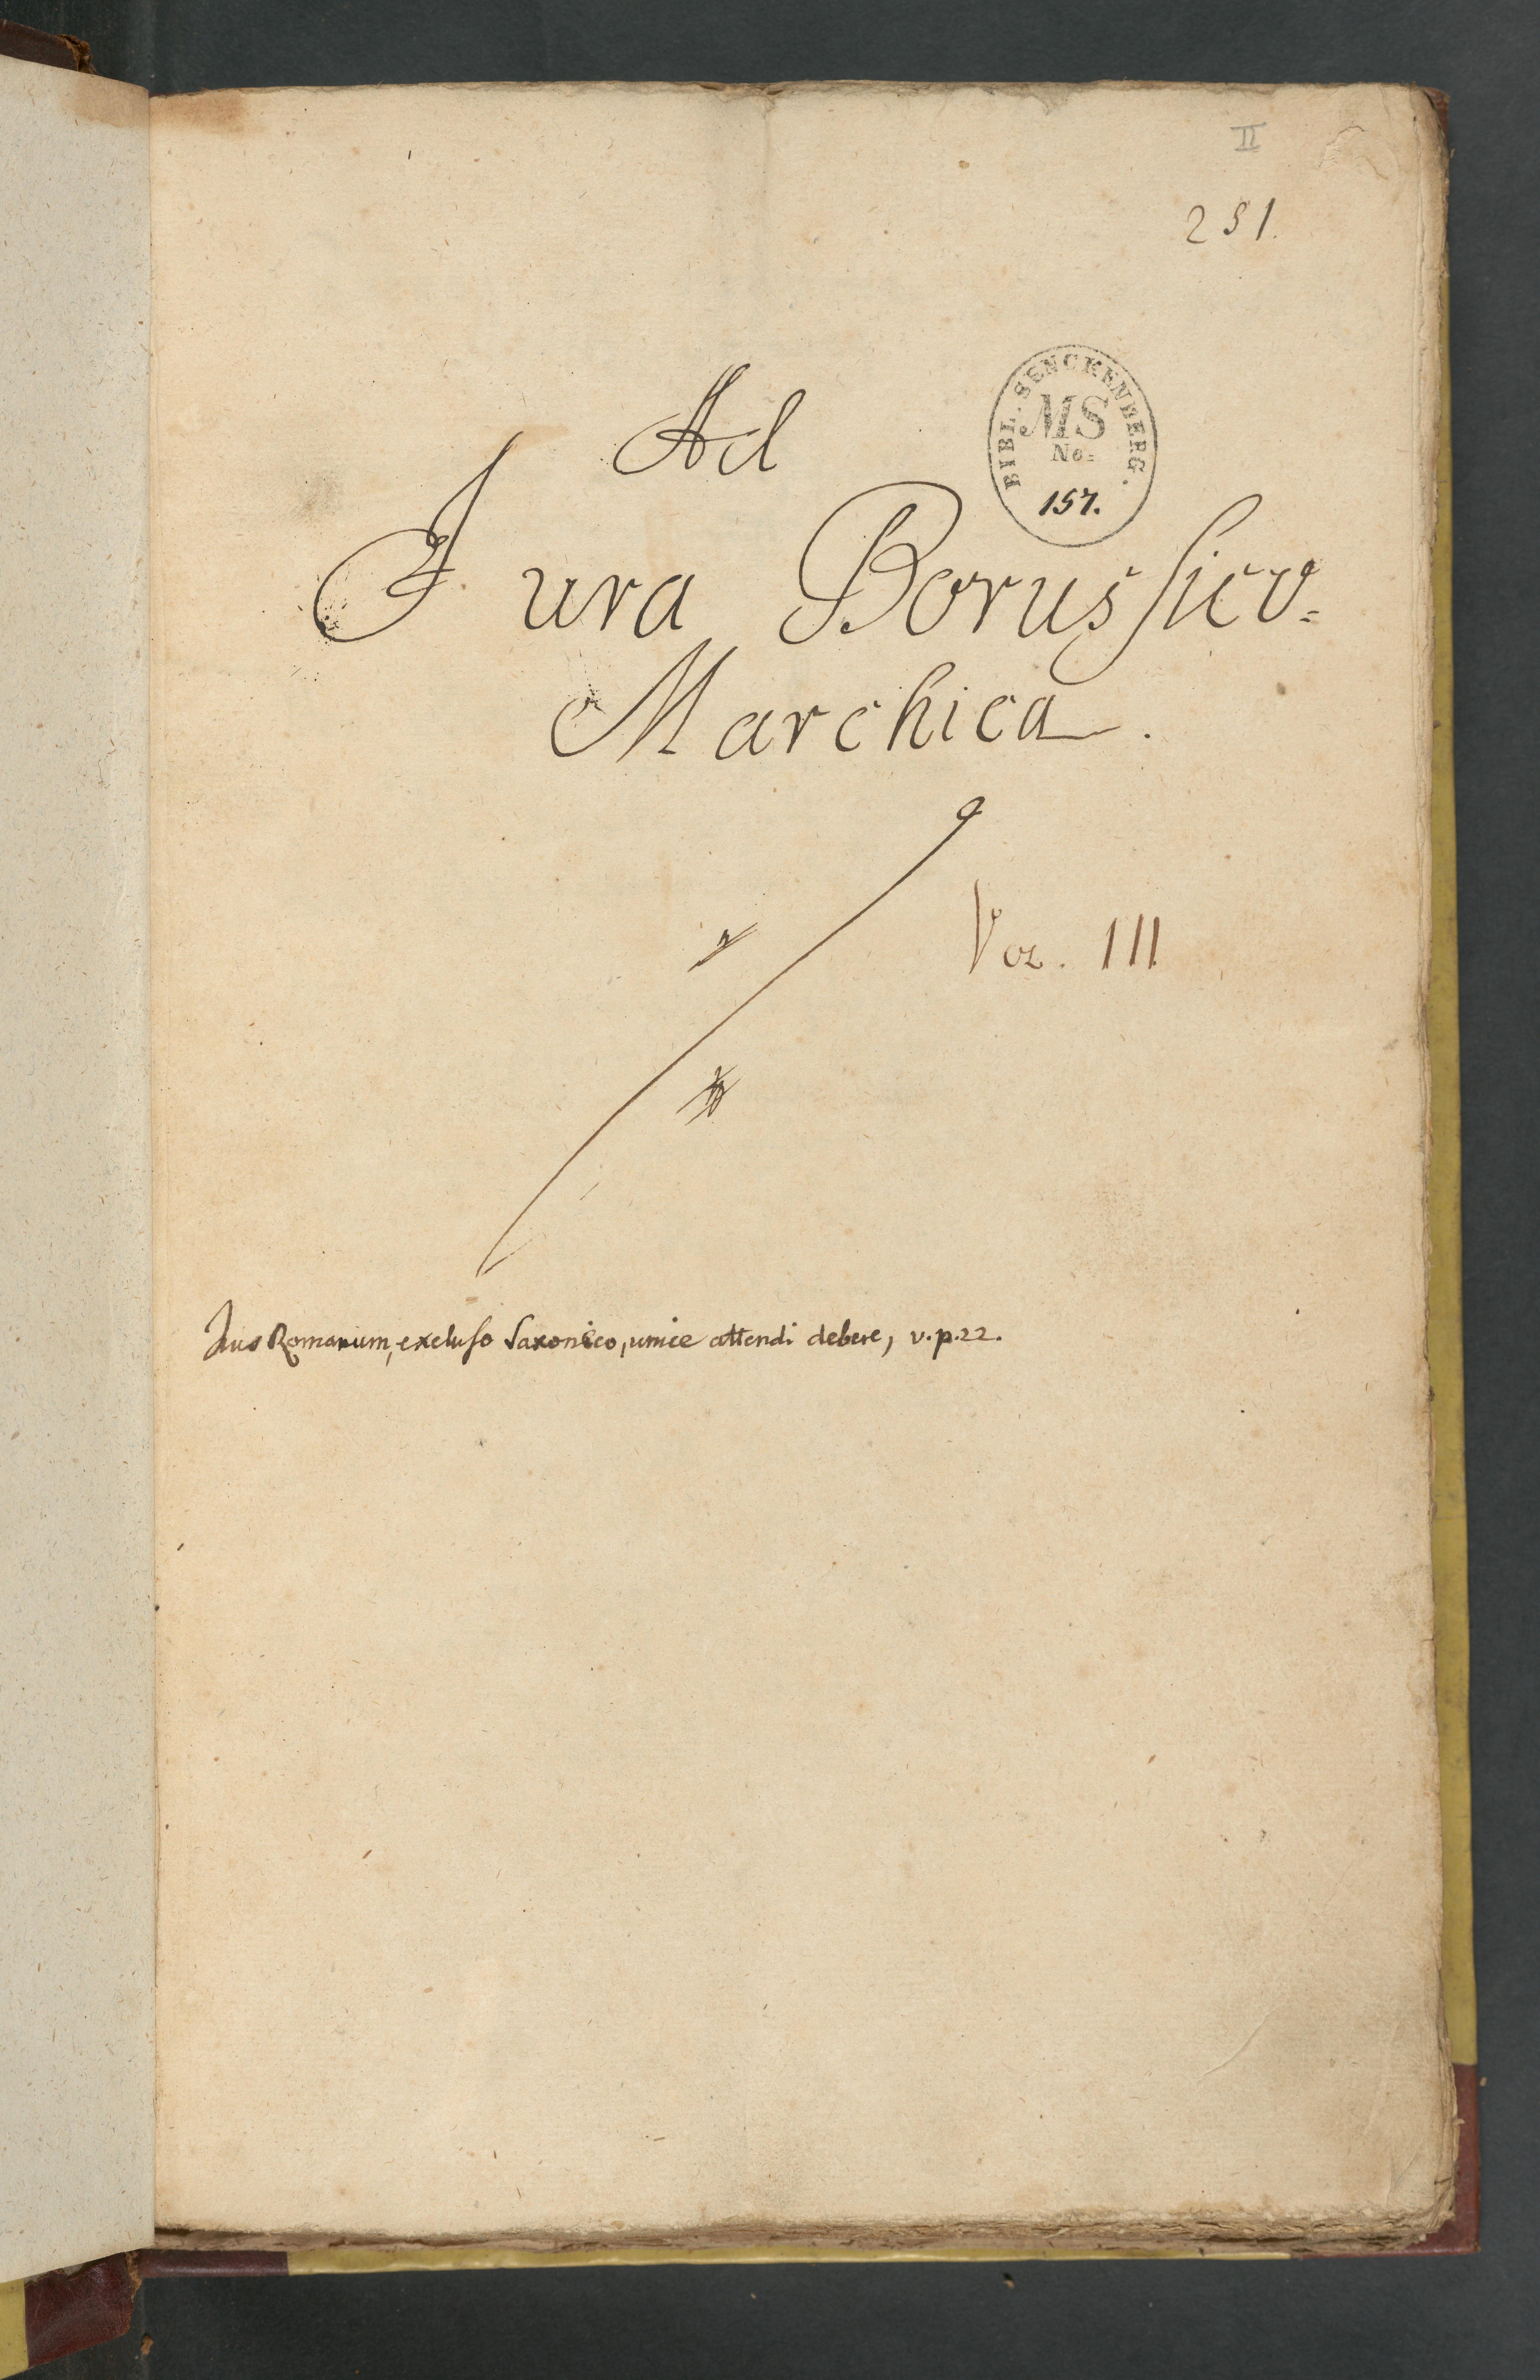 II
251.
Ad
BIBL. SENCKENBERG.
MS
No.
157.
Jura Borussico-
Marchica.
Vol. III
Jus Romanum, excluso Saxonico, unice attendi debere, v. p. 22.